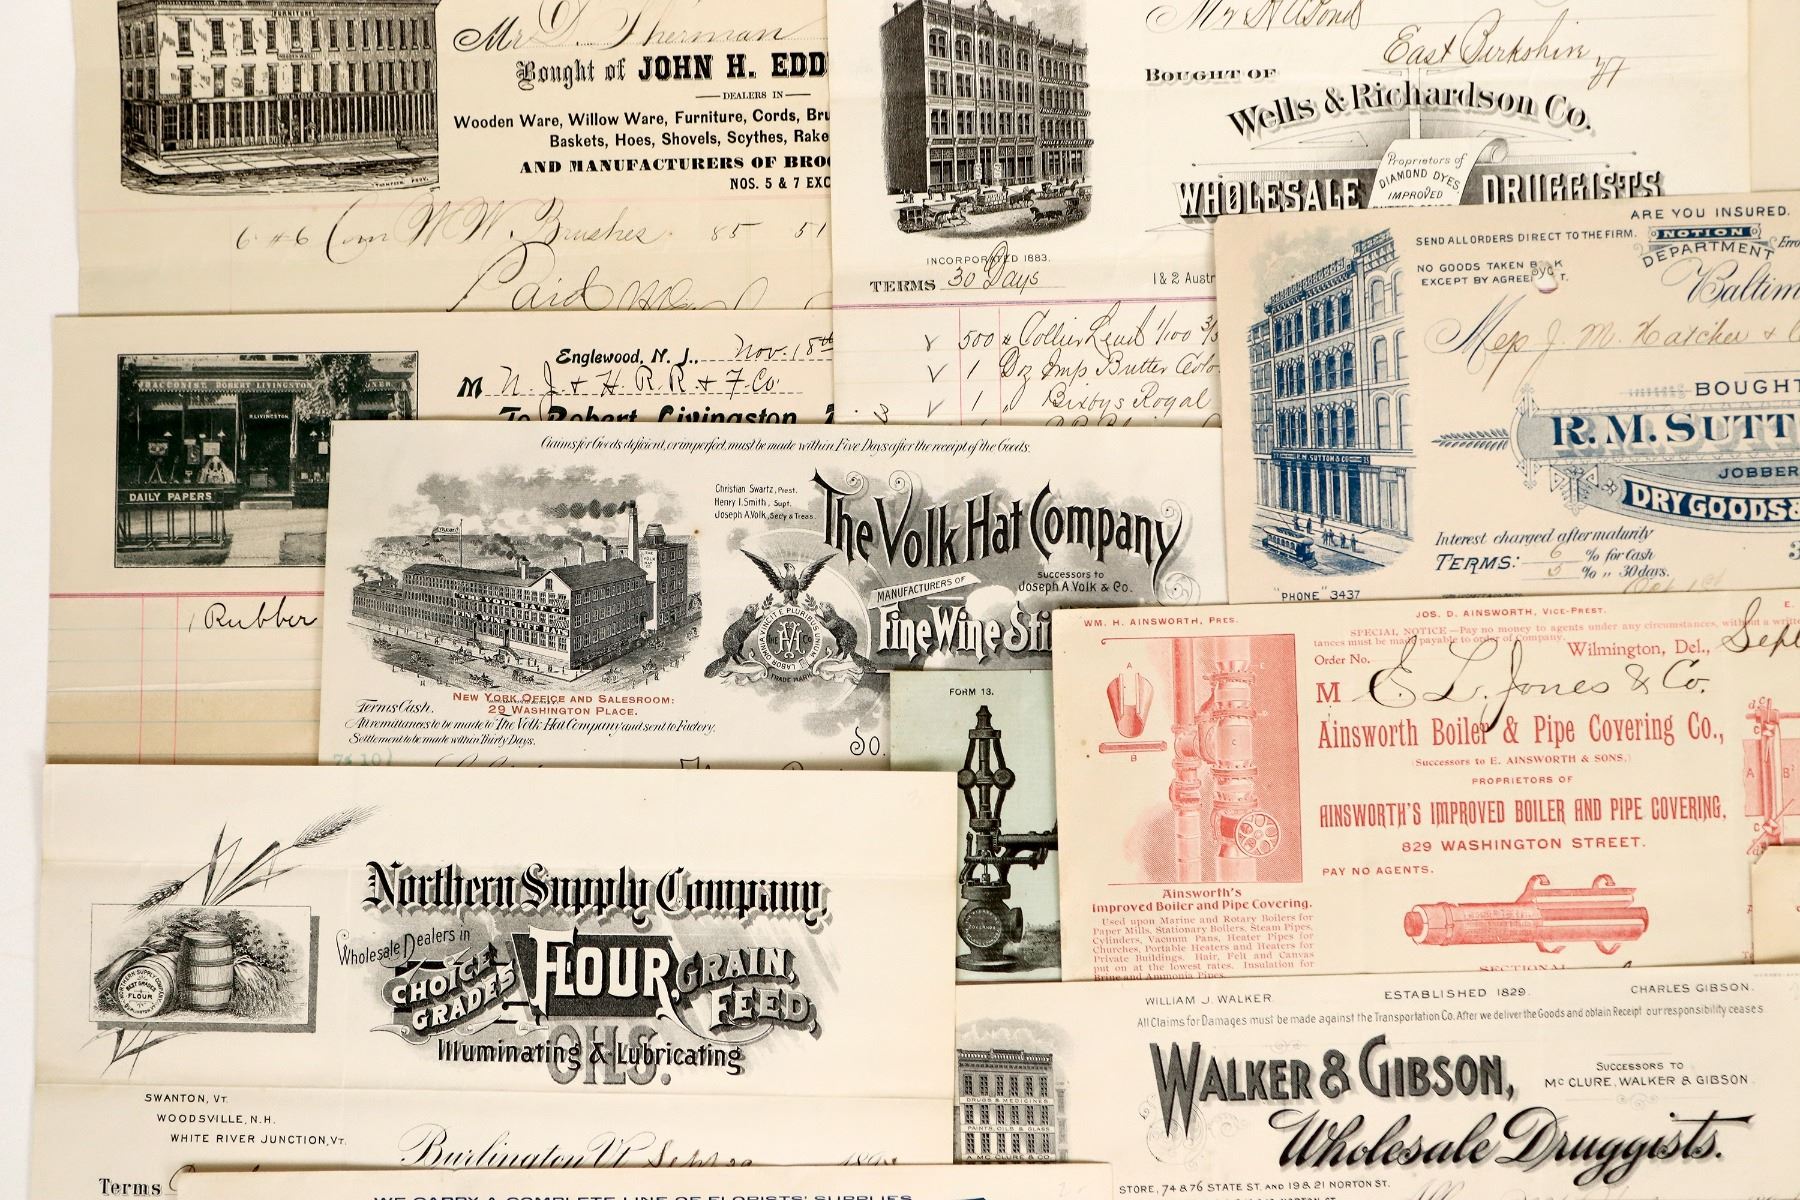 FURNITURE
Mr D. Sherman
Bought of JOHN H. EDD
DEALERS IN
Wooden Ware, Willow Ware, Furniture, Cords, Bru
Baskets, Hoes, Shovels, Scythes, Rake
AND MANUFACTURERS OF BROO
NOS. 5 & 7 EXC
6 #6 Com W W. Brushes. 85 51
Paid
Mr H A Pond
East Berkshire Vt
BOUGHT OF
Wells & Richardson Co.
Proprietors of
DIAMOND DYES,
IMPROVED
WHOLESALE DRUGGISTS
INCORPORATED 1883.
TERMS 30 Days
1 & 2 Austr
500 # Collier Lead
1 Doz Imp Butter Colo
1 " Bixbys Royal
ARE YOU INSURED.
SEND ALL ORDERS DIRECT TO THE FIRM.
NOTION
DEPARTMENT
Erro
NO GOODS TAKEN BACK
EXCEPT BY AGREE
Baltim
Mess J. M. Hatcher &
BOUGHT
R. M. SUTT
JOBBER
DRY GOODS &
R. M. SUTTON & CO.
Interest charged after maturity
TERMS: 6 % for Cash
5 % " 30 days.
"PHONE" 3437
Englewood, N. J., Nov. 18th
M N. J. & H. R. R. & F. Co.
To Robert Livingston
ROBERT LIVINGSTON
R. LIVINGSTON
DAILY PAPERS
1 Rubber
Claims for Goods deficient, or imperfect, must be made within Five Days after the receipt of the Goods.
Christian Swartz, Prest.
Henry I. Smith, Supt.
Joseph A. Volk, Secy & Treas.
The Volk Hat Company
SUCCESSORS TO
Joseph A Volk & Co.
MANUFACTURERS OF
Fine Wine Sti
THE VOLK HAT CO
E PLURIBUS UNUM
LABOR OMNIA VINCIT
TRADE MARK
NEW YORK OFFICE AND SALESROOM:
29 WASHINGTON PLACE.
Terms Cash.
All remittances to be made to The Volk Hat Company and sent to Factory.
Settlement to be made within Thirty Days.
So.
FORM 13.
WM. H. AINSWORTH, PRES.
JOS. D. AINSWORTH, VICE-PREST.
E.
SPECIAL NOTICE—Pay no money to agents under any circumstances, without a writte
tances must be made payable to order of Company.
Order No.
Wilmington, Del., Sept
M E. L. Jones & Co.
Ainsworth Boiler & Pipe Covering Co.,
(Successors to E. AINSWORTH & SONS,)
PROPRIETORS OF
AINSWORTH'S IMPROVED BOILER AND PIPE COVERING,
829 WASHINGTON STREET.
PAY NO AGENTS.
A
B
C
E
Ainsworth's
Improved Boiler and Pipe Covering.
Used upon Marine and Rotary Boilers for
Paper Mills, Stationary Boilers, Steam Pipes,
Cylinders, Vacuum Pans, Heater Pipes for
Churches, Portable Heaters and Heaters for
Private Buildings. Hair, Felt and Canvas
put on at the lowest rates. Insulation for
Brine and Ammonia Pipes.
SECTIONAL
A B²
Northern Supply Company,
Wholesale Dealers in
CHOICE
GRADES
FLOUR, GRAIN,
FEED,
Illuminating & Lubricating
OILS.
NORTHERN SUPPLY COMPANY
BEST GRADES
FLOUR
BURLINGTON, VT
SWANTON, VT.
WOODSVILLE, N.H.
WHITE RIVER JUNCTION, VT.
Burlington Vt Sept 29 189
Terms
WE CARRY A COMPLETE LINE OF FLORISTS' SUPPLIES
WILLIAM J. WALKER.
ESTABLISHED 1829.
CHARLES GIBSON.
All Claims for Damages must be made against the Transportation Co. After we deliver the Goods and obtain Receipt our responsibility ceases
WALKER & GIBSON,
SUCCESSORS TO
MC CLURE, WALKER & GIBSON.
Wholesale Druggists.
DRUGS & MEDICINES
PAINTS, OILS & GLASS
A. MC CLURE & CO
STORE, 74 & 76 STATE ST. AND 19 & 21 NORTON ST.